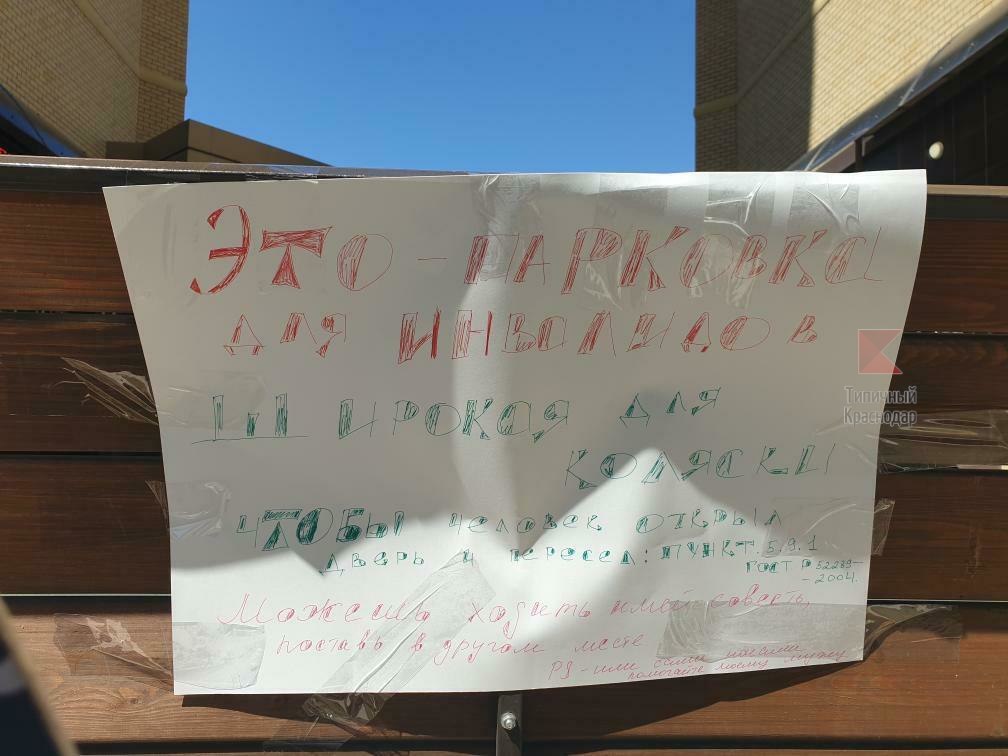 ЭТО - ПАРКОВКА
ДЛЯ ИНВАЛИДОВ
ШИРОКАЯ ДЛЯ
КОЛЯСКИ
ЧТОБЫ ЧЕЛОВЕК ОТКРЫЛ
ДВЕРЬ И ПЕРЕСЕЛ: ПУНКТ. 5.9.1
ГОСТ Р 52289-
- 2004.
Можешь ходить имей совесть,
поставь в другом месте
PS - или
помогайте моему
Типичный
Краснодар